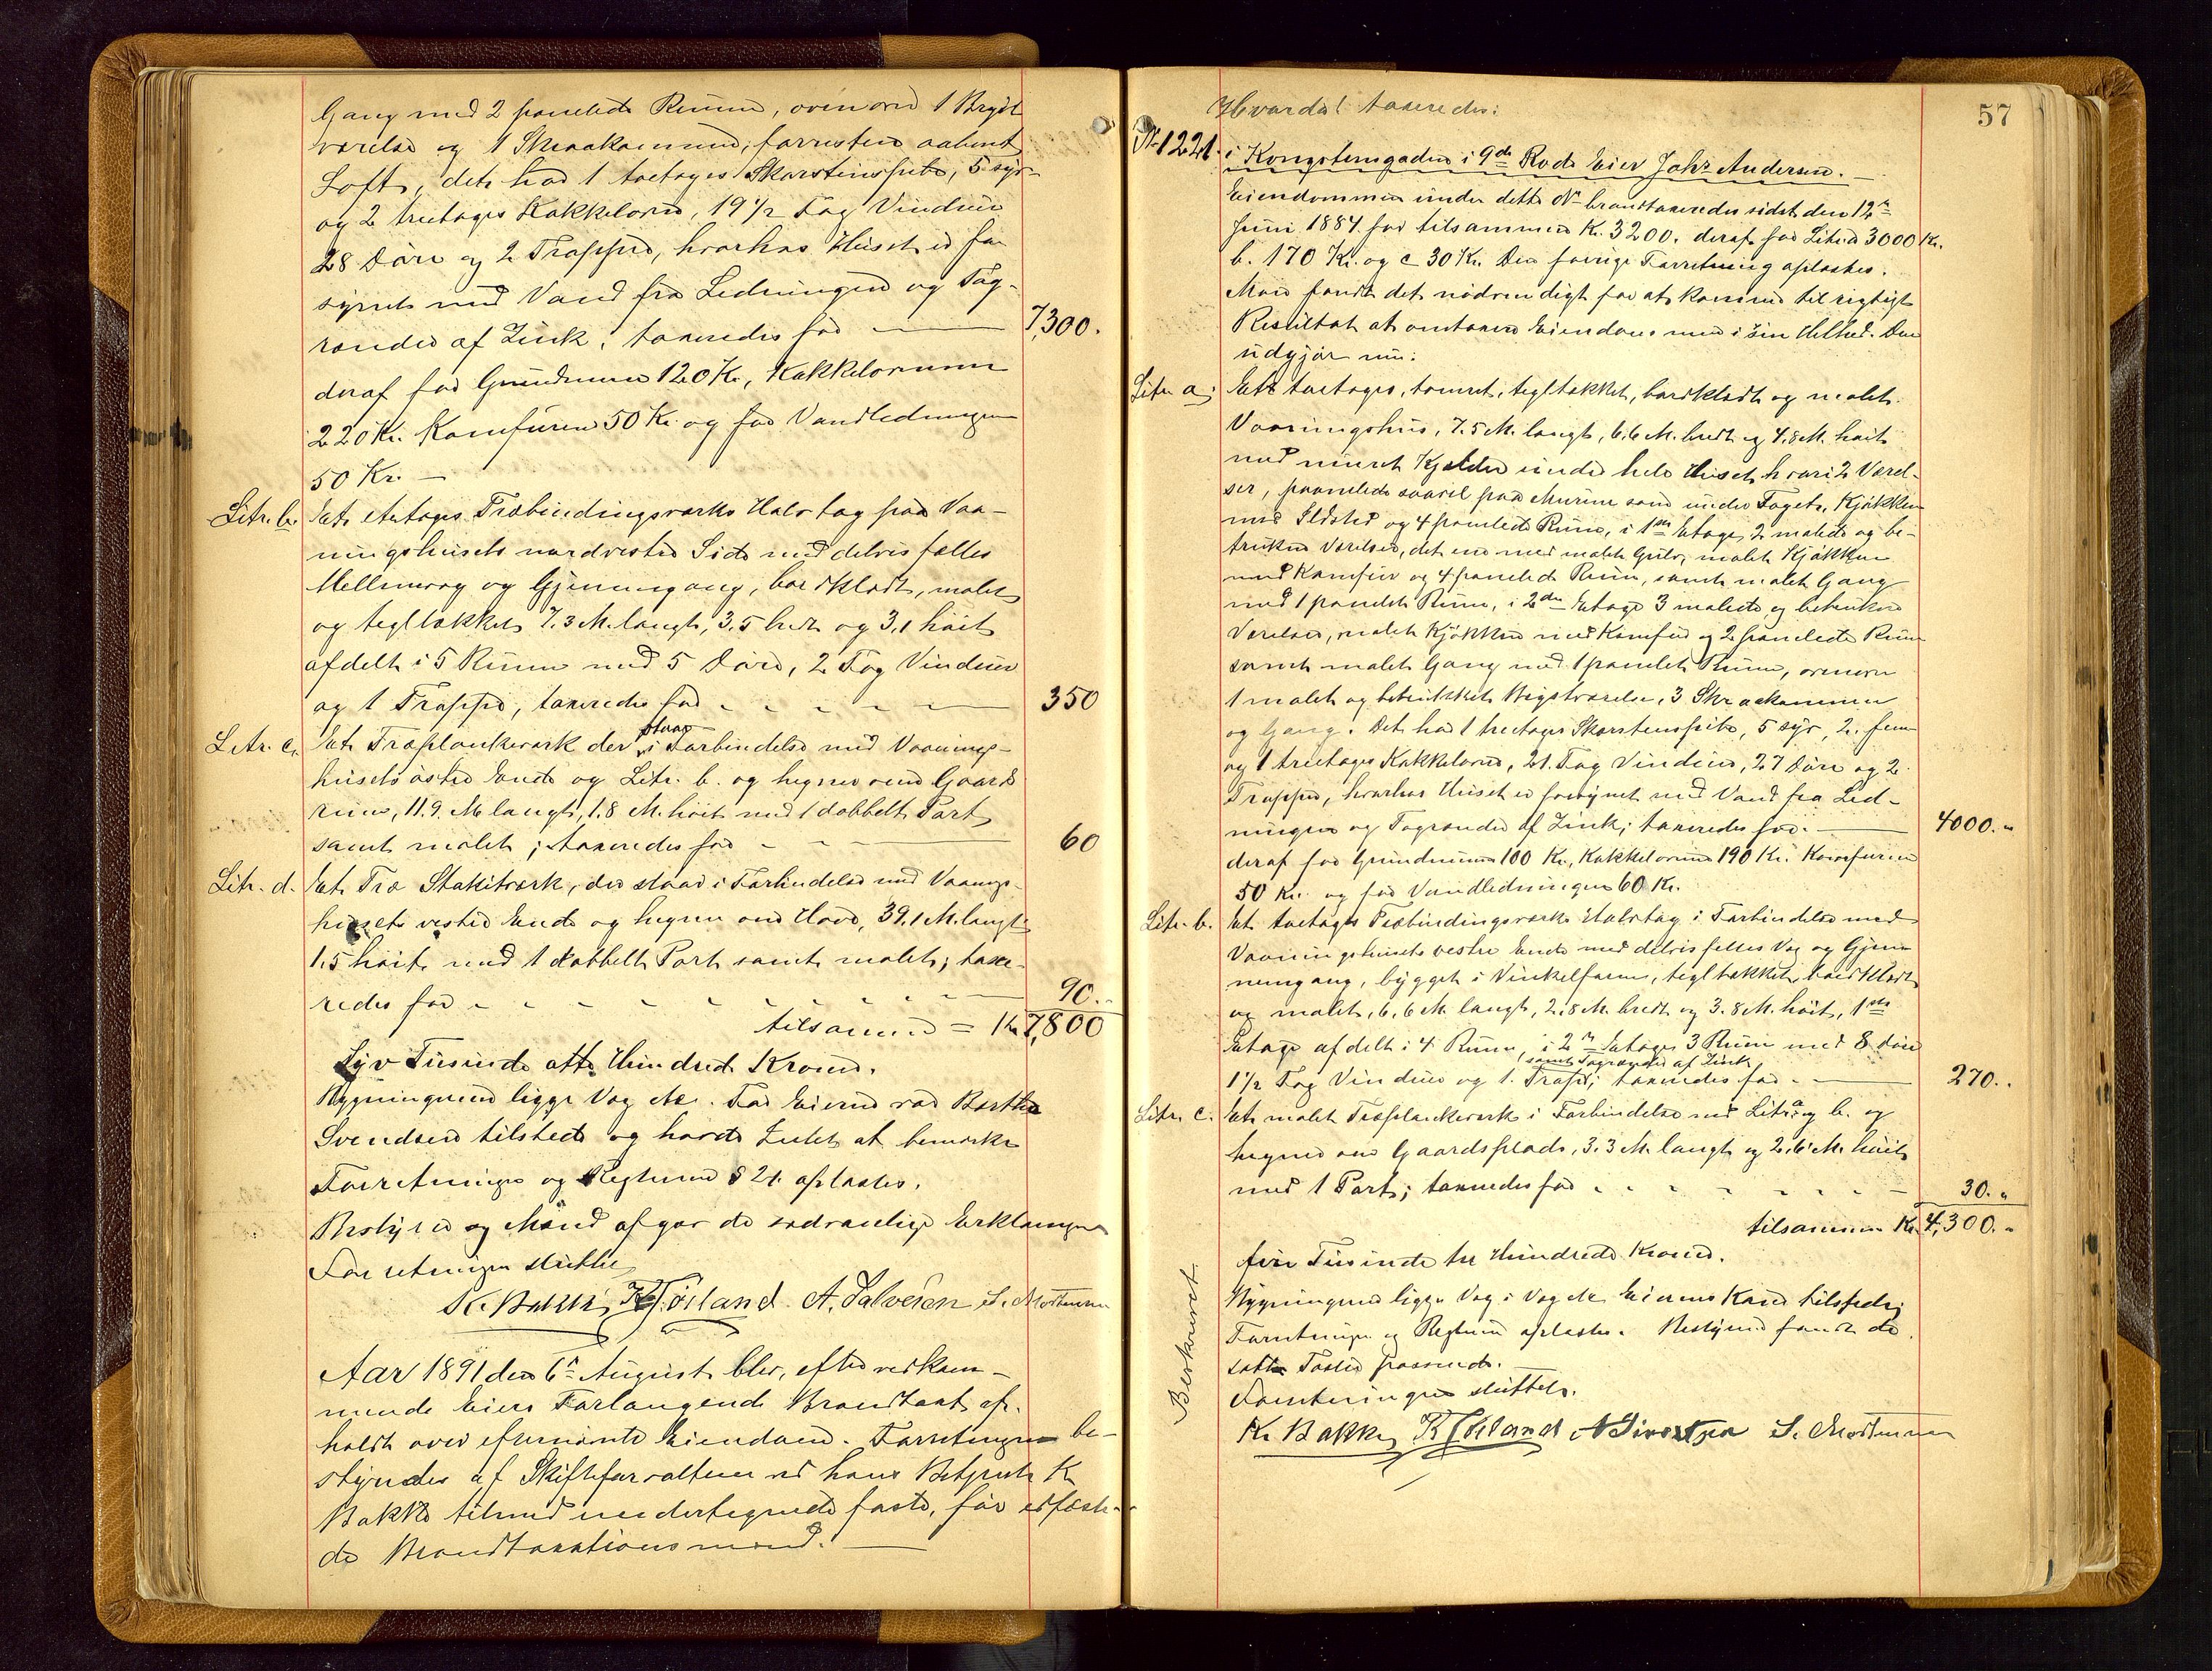 Gang med 2 panelede Rum, ovenover 1 Bryst
værelse og 1 Skraakammer, forresten aabent
Loft, dets har 1 toetages Skorstenspibe, 5 syv
og 2 treetages Kakkelovne, 19 1/2 Fag Vinduer
28 Döre og 2 Trapper, hvorhos Huset er for
synet med Vand fra Ledningen og Tag-
render af Zink; taxeredes for — 7,300.
deraf for Grundmuren 120 Kr, Kakkelovnene
220 Kr. Komfuren 50 Kr og for Vandledningen
50 Kr. —
Litr. b. Et etetages Træbindingsværks Halvtag paa Vaa-
ningshusets nordvestre Side med delvis fælles
Mellemvæg og Gjennemgang, bordklædt, malet
og tegltækket 7.3 M. langt, 3.5 bredt og 3.1 höit
afdelt i 5 Rum med 5 Döre, 2 Fag Vinduer
og 1 Trappe, taxeredes for - - - 350
Litr. c. Et Træplankeværk der staar i Forbindelse med Vaanings-
husets östre Ende og Litr. b. og hegner om Gaards
rum, 11.9 M langt, 1.8 M. höit med 1 dobbelt Port
samt malet; taxeredes for - - 60
Litr. d. Et Træ Stakitværk, der staar i Forbindelse med Vaanings-
husets vestre Ende og hegner om Have, 39.1 M. langt
1.5 höit med 1 dobbelt Port samt malet; taxe-
redes for - - - - - 90.-
tilsammen = Kr 7,800
Syv Tusinde otte Hundrede Kroner.
Bygningerne ligge Væg etc. For Eieren var Barthe
Svendsen tilstede og havde Intet at bemærke
Forretningen og Reglerne § 21 oplæstes.
Bestyrer og Mænd afgav de sædvanlige Erklæringer
Forretningen sluttet
K. Bakke K Törland. A. Salvesen S. Mortensen
Aar 1891 den 6te August blev, efter vedkom-
mende Eiers Forlangende Brandtaxt af-
holdt over efternævnte Eiendom. Forretningen be-
styredes af Skifteforvalteren ved hans Betjent K
Bakke tilmed undertegnede faste, för edfæste-
de Brandtaxationsmænd. —
57
Hvorda! taxeredes:
Nr. 1221. i Kongstensgaden i 9de Rode Eier Johs Andersen. —
Eiendommen under dette Nr brandtaxeredes sidst den 12te
Juni 1884 for tilsammen Kr. 3200. deraf for Litr. a 3000 Kr.
b. 170 Kr. og c 30 Kr. Den forrige Forretning oplæstes.
Man fandt det nödvendigt for at komme til rigtigt
Resultat at omtaxere Eiendommen i sin Helhed. Den
udgjör nu:
Litr. a; Et toetages, tömret, tegltækket, bordklædt og malet
Vaaningshus, 7.5 M. langt, 6.6 M. bredt og 4.8 M. höit
med muret Kjelder under hele Huset hvori 2 Værel-
ser, panelede saavel paa Murene som under Taget, Kjökken
med Ildsted og 4 panelede Rum, i 1ste Etage 2 malede og be-
trukne Værelser, det ene med malet Gulv, malet Kjökken
med Komfur og 4 panelede Rum, samt malet Gang
med 1 panelet Rum, i 2den Etage 3 malede og betrukne
Værelser, malet Kjökken med Komfur og 2 panelede Rum
samt malet Gang med 1 panelet Rum, ovenover
1 malet og betrukket Brystværelse, 3 Skraakammer
og Gang. Det har 1 treetages Skorstenspibe, 5 syv, 2 fem
og 1 treetages Kakkelovne, 21 Fag Vinduer, 27 Döre og 2
Trapper, hvorhos Huset er forsynet med Vand fra Led-
ningen og Tagrender af Zink; taxeredes for. — 4000.-
deraf for Grundmuren 100 Kr, Kakkelovnene 190 Kr. Komfuren
50 Kr. og for Vandledningen 60 Kr.
Litr. b. Et toetages Træbindingsværks Halvtag i Forbindelse med
Vaaningshusets vestre Ende med delvis fælles Væg og Gjen-
nemgang, bygget i Vinkelform, tegltækket, bordklædt
og malet, 6.6 M. langt, 2.8 M. bredt og 3.8 M. höit, 1ste
Etage afdelt i 4 Rum, i 2den Etage 3 Rum med 8 Döre
samt Tagrender af Zink
1 1/2 Fag Vinduer og 1 Trappe; taxeredes for - — 270..
Litr. c. Et malet Træplankeværk i Forbindelse med Litr. a og b. og
hegner om Gaardsplads, 3.3 M. langt og 2.6 M. höit
med 1 Port; taxeredes for - - - 30.-
tilsammen Kr. 4,300.-
fire Tusinde tre Hundrede Kroner.
Bygningerne ligge Væg i Væg etc Eierens Kone tilstede;
Forretningen og Reglerne oplæstes. Bestyrer fandt de
satte Taxter passende.
Forretningen sluttet.
Beskrevet
K. Bakke K Törland A Sivertsen S. Mortensen